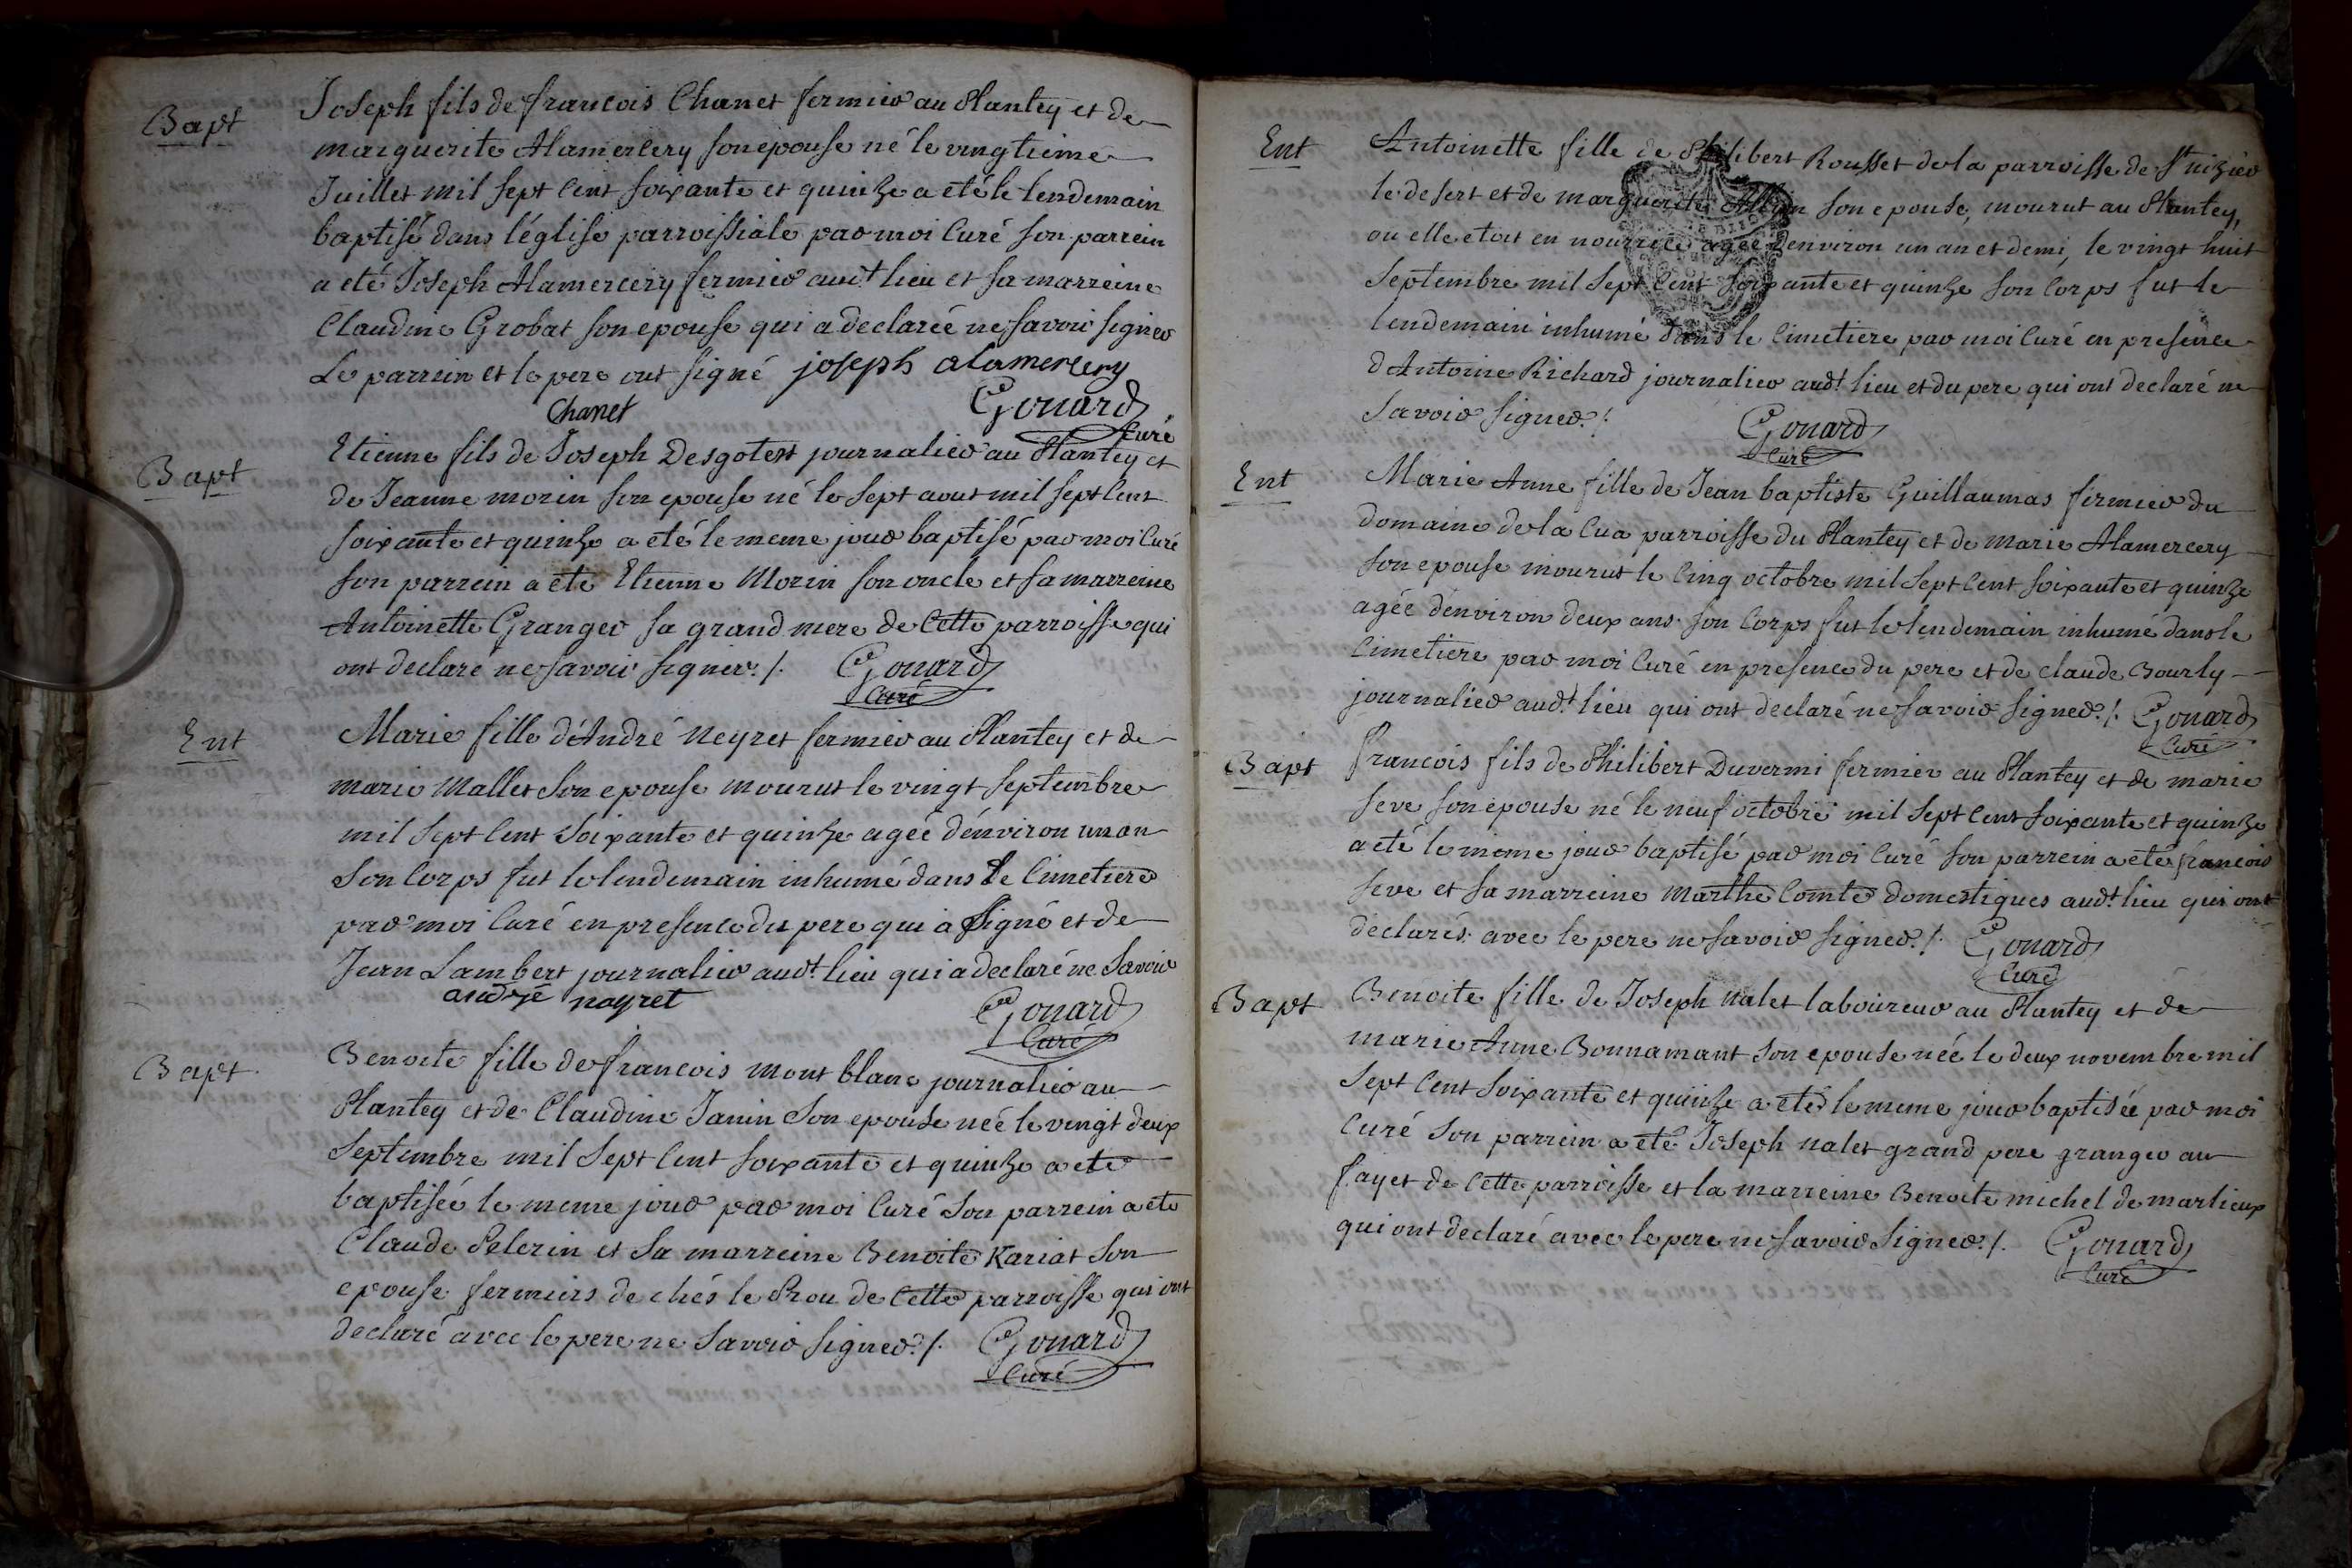 Bapt
Joseph fils de francois Chanet fermier au Plantey et de
marguerite Alamercery son epouse né le vingtieme
Juillet mil sept cent soixante et quinze a eté le lendemain
baptisé dans l'église parroissiale par moi Curé son parrein
a eté Joseph Alamercery fermier audt lieu et sa marreine
Claudine Grobat son epouse qui a declarée ne savoir signer
Le parrein et le pere ont signé joseph alamercery
Chanet Gouard
Curé
Bapt
Etienne fils de Joseph Desgotest journalier au Plantey et
de Jeanne morin son epouse né le sept aout mil sept cent
soixante et quinze a eté le meme jour baptisé par moi Curé
son parrein a eté Etienne Morin son oncle et sa marreine
Antoinette Granger sa grand mere de Cette parroisse qui
ont declaré ne savoir signer ./. Gouard
Curé
Ent
Marie fille d'André Neyret fermier au Plantey et de
marie Mallet son epouse mourut le vingt septembre
mil sept cent soixante et quinze agée d'environ un an
son Corps fut le lendemain inhumé dans le Cimetiere
par moi Curé en presence du pere qui a signé et de
Jean Lambert journalier audt lieu qui a declaré ne savoir
andrÿe nayret Gouard
Curé
Bapt
Benoite fille de francois mont blanc journalier au
Plantey et de Claudine Janin son epouse née le vingt deux
septembre mil sept cent soixante et quinze a eté
baptisée le meme jour par moi Curé son parrein a eté
Claude Pelerin et sa marreine Benoite Kariat son
epouse fermiers de chés le Prou de Cette parroisse qui ont
declaré avec le pere ne savoir signer ./. Gouard
Curé
Ent
Antoinette fille de Philibert Rousset de la parroisse de St nizier
le desert et de marguerite son epouse, mourut au Plantey,
ou elle etoit en nourrice agée d'environ un an et demi, le vingt huit
septembre mil sept cent soixante et quinze son Corps fut le
lendemain inhumé dans le Cimetiere par moi Curé en presence
d'Antoine Richard journalier audt lieu et du pere qui ont declaré ne
savoir signer ./. Gouard
Curé
Ent
Marie Anne fille de Jean baptiste Guillaumas fermier du
domaine de la Cua parroisse du Plantey et de marie Alamercery
son epouse mourut le Cinq octobre mil sept cent soixante et quinze
agée d'environ deux ans son Corps fut le lendemain inhumé dans le
Cimetiere par moi Curé en presence du pere et de Claude Bourly
journalier audt lieu qui ont declaré ne savoir signer ./. Gouard
Curé
Bapt
francois fils de Philibert Duvermi fermier au Plantey et de marie
seve son epouse né le neuf octobre mil sept cent soixante et quinze
a eté le meme jour baptisé par moi Curé son parrein a eté francois
seve et sa marreine Marthe Comte domestiques audt lieu qui ont
declarés avec le pere ne savoir signer ./. Gouard
Curé
Bapt
Benoite fille de Joseph Nalet laboureur au Plantey et de
marie Anne Bonnamant son epouse née le deux novembre mil
sept cent soixante et quinze a eté le meme jour baptisée par moi
Curé son parrein a eté Joseph nalet grand pere granger au
fayet de Cette parroisse et la marreine Benoite michel de marlieux
qui ont declaré avec le pere ne savoir signer ./. Gouard
Curé